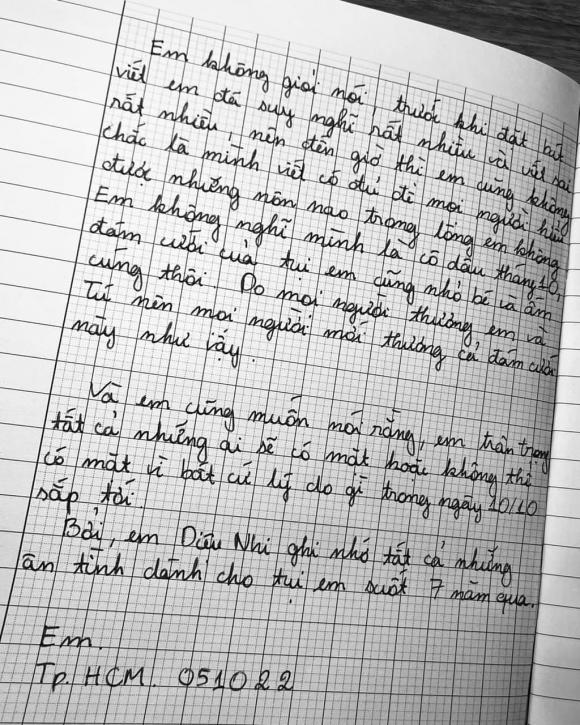 Em không giỏi nói, trước khi đặt bút
viết em đã suy nghĩ rất nhiều và viết sai
rất nhiều, nên đến giờ thì em cũng không
chắc là mình viết có đủ để mọi người hiểu
được những nôn nao trong lòng em không
Em không nghĩ mình là cô dâu tháng 10,
đám cưới của tụi em cũng nhỏ bé và ấm
cúng thôi. Do mọi người thương em và
Tú nên mọi người mới thương cả đám cưới
này như vậy.
Và em cũng muốn nói rằng, em trân trọng
tất cả những ai sẽ có mặt hoặc không thể
có mặt vì bất cứ lý do gì trong ngày 10/10
sắp tới.
Bởi, em Diệu Nhi ghi nhớ tất cả những
ân tình dành cho tụi em suốt 7 năm qua.
Em.
Tp. HCM. 051022